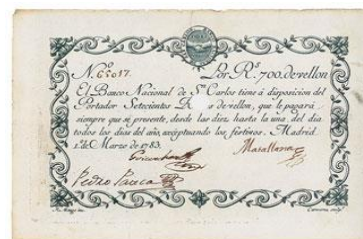 N.º 65017.
Por R.s 700. de vellon
El Banco Nacional de S.n Carlos tiene á disposicion del
Portador Setecientos R.s de vellon, que le pagará
siempre que se presente, desde las diez hasta la una, del dia
todos los dias del año, exceptuando los festivos. Madrid
1.º de Marzo de 1783.
Pedro